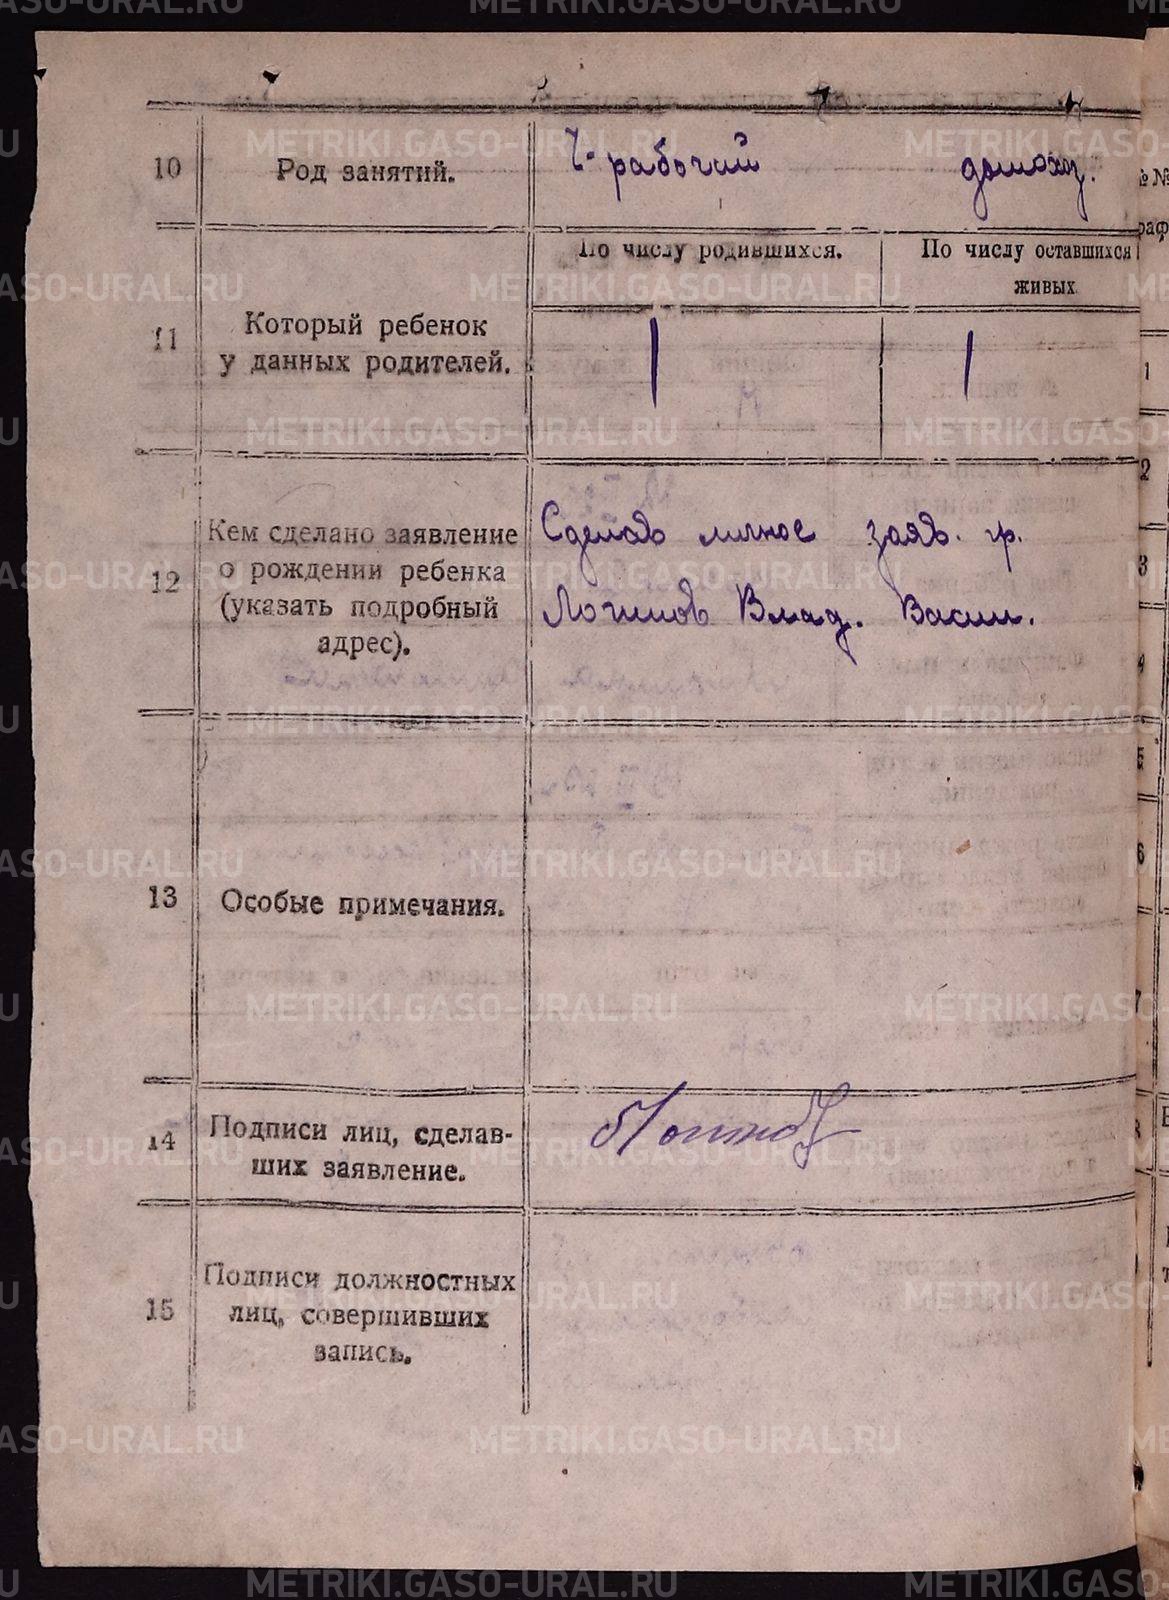 METRIKI.GASO-URAL.RU
10 Род занятий. рабочий домохоз.
По числу родившихся. По числу оставшихся живых
11 Который ребенок
у данных родителей. 1 1
12 Кем сделано заявление
о рождении ребенка
(указать подробный
адрес).
личное заяв. гр.
Логинов Влад. Васил.
13 Особые примечания.
14 Подписи лиц, сделав-
ших заявление.
Логинов
15 Подписи должностных
лиц, совершивших
запись.
1
2
3
4
5
6
7
8